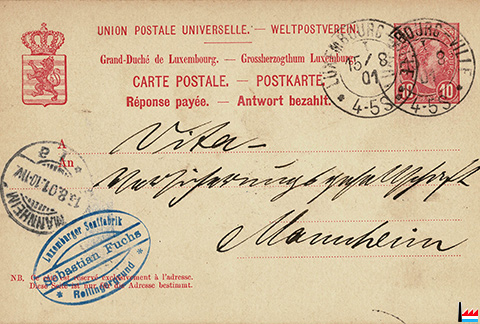 UNION POSTALE UNIVERSELLE. — WELTPOSTVEREIN.
Grand-Duché de Luxembourg. — Grossherzogthum Luxemburg.
CARTE POSTALE. — POSTKARTE.
Réponse payée. — Antwort bezahlt.
LUXEMBOURG-VILLE
15/8
01
4-5S
LUXEMBOURG-VILLE
8
01
4-5S
10
10
A
An
Vita-
Versicherungsgesellschaft
Mannheim
MANNHEIM
Luxemburger Senffabrik
Sebastian Fuchs
* Rollingergrund *
NB. Ce côté est réservé exclusivement à l'adresse.
Diese Seite ist nur für die Adresse bestimmt.